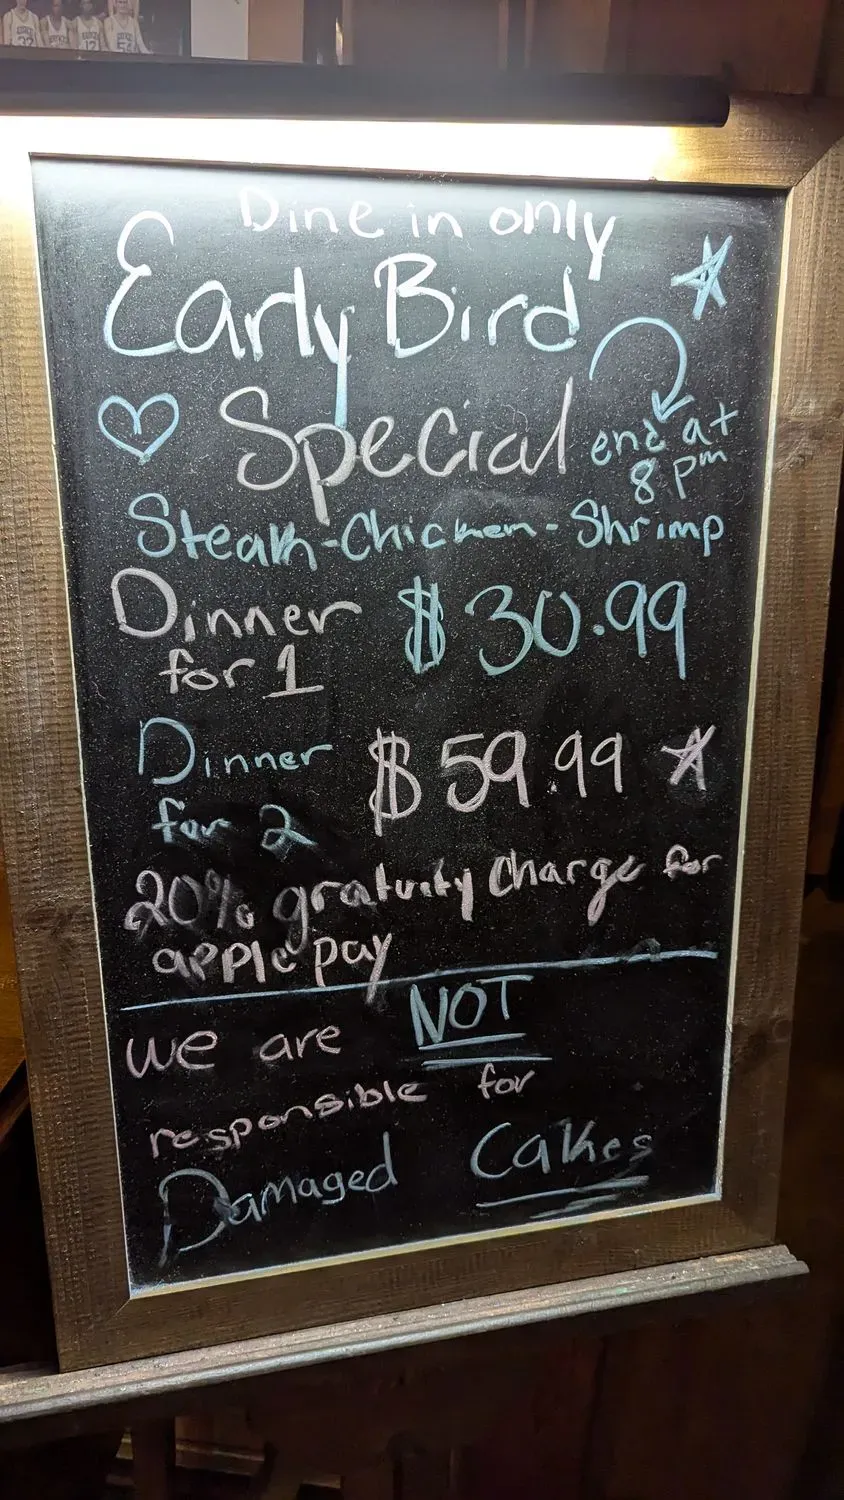 Dine in only
Early Bird
Special
end at
8 pm
Steak-Chicken-Shrimp
Dinner
for 1
$30.99
Dinner
for 2
$59.99
20% gratuity charge for
apple pay
we are NOT
responsible for
Damaged Cakes